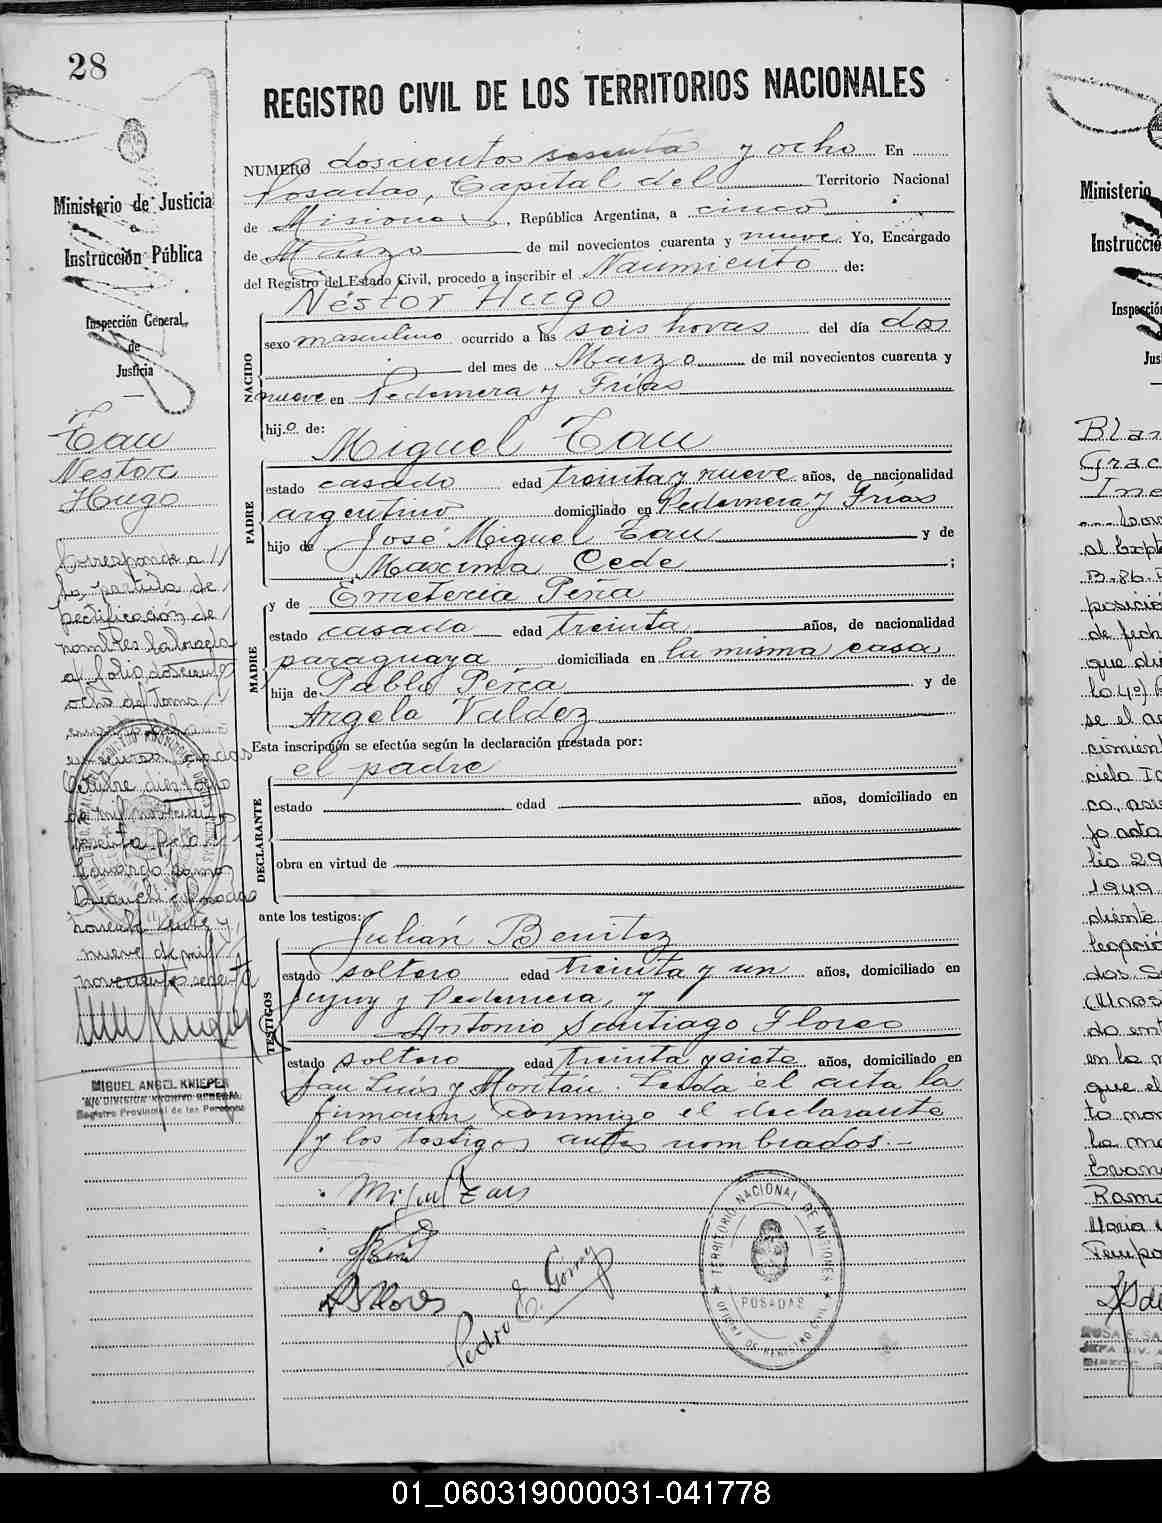 28
REGISTRO CIVIL DE LOS TERRITORIOS NACIONALES
NUMERO doscientos sesenta y ocho En
Posadas, Capital del Territorio Nacional
de Misiones, República Argentina, a cinco
de Marzo de mil novecientos cuarenta y nueve. Yo, Encargado
del Registro del Estado Civil, procedo a inscribir el Nacimiento de:
Néstor Hugo
NACIDO
sexo masculino ocurrido a las seis horas del día dos
del mes de Marzo de mil novecientos cuarenta y
nueve en Pedernera y Frías
hijo de: Miguel Zau
PADRE
estado casado edad treinta y nueve años, de nacionalidad
argentino domiciliado en Pedernera y Frías
hijo de José Miguel Zau y de
Maxima Cede;
y de Emeteria Peña
MADRE
estado casada edad treinta años, de nacionalidad
paraguaya domiciliada en la misma casa
hija de Pablo Peña y de
Angela Valdez
Esta inscripción se efectúa según la declaración prestada por:
el padre
DECLARANTE
estado edad años, domiciliado en
obra en virtud de
ante los testigos:
Julián Benítez
TESTIGOS
estado soltero edad treinta y un años, domiciliado en
Jujuy y Pedernera, y
Antonio Santiago Flores
estado soltero edad treinta y siete años, domiciliado en
San Luis y Leida el acta la
firmaron conmigo el declarante
y los testigos antes nombrados.-
Miguel Zau
Pedro E. Gómez
TERRITORIO NACIONAL DE MISIONES
POSADAS
OFICINA DE REGISTRO CIVIL
Ministerio de Justicia
e
Instrucción Pública
Inspección General
de
Justicia
Zau
Nestor
Hugo
Corresponde a
la partida de
rectificación de
nombres labrada
al folio doscientos
ocho del Tomo
Octubre dieciocho
de mil novecientos
sesenta
Posadas
nueve de mil
novecientos sesenta
MIGUEL ANGEL KNIEPER
DIVISION ARCHIVO GENERAL
Registro Provincial de las Personas
Ministerio
Instrucció
Inspecció
Jus
Blan
Grac
Ine
al Expte
B-86
posició
de fech
que di
se el ac
cimient
co, ase
jo acta
lio 29
1949
diente
en la m
que el
to nom
la ma
Ramo
Maria
Tempo
ROSA E. SA
JEFA DIV. A
01_060319000031-041778